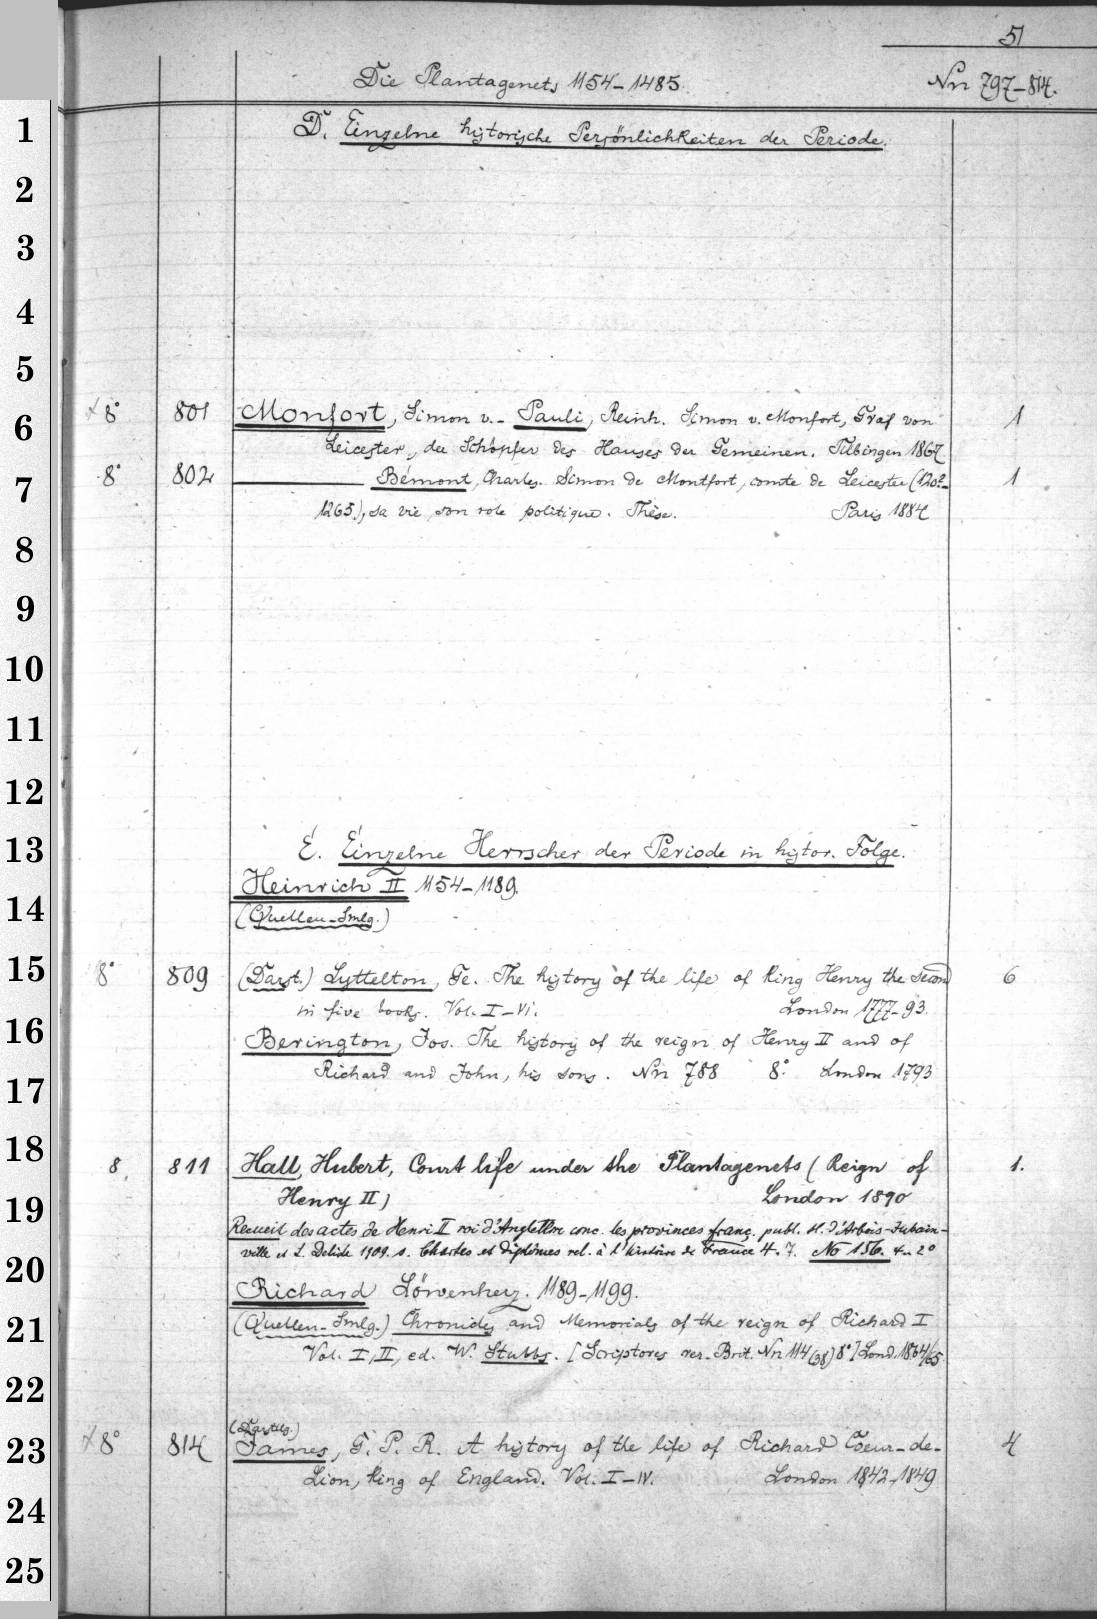 51
Die Plantagenets 1154-1485. Nrn 797-814.
1 D. Einzelne historische Persönlichkeiten der Periode.
2
3
4
5
6 8° 801 Monfort, Simon v. - Pauli, Reinh. Simon v. Monfort, Graf von 1
Leicester, der Schöpfer des Hauses der Gemeinen. Tübingen 1867
7 8° 802 ——— Bémont, Charles. Simon de Montfort, comte de Leicester (120?-1
1265), sa vie, son role politique. Thèse. Paris 1884
8
9
10
11
12
13 E. Einzelne Herrscher der Periode in histor. Folge.
Heinrich II 1154-1189.
14 (Quellen-Smlg.)
15 8° 809 (Darst.) Lyttelton, Ge. The history of the life of King Henry the Second 6
in five books. Vol. I-VI. London 1777-93.
16 Berington, Jos. The history of the reign of Henry II and of
Richard and John, his sons. Nrn 788 8° London 1793
17
18 8 811 Hall, Hubert, Court life under the Plantagenets (Reign of 1.
19 Henry II) London 1890
Recueil des actes de Henri II roi d'Angleterre conc. les provinces franç. publ. H. d'Arbois-Jubain-
ville et L. Delisle 1909. s. Chartes et diplômes rel. à l'histoire de France 4. 7. No 156. 4-2°
20 Richard Löwenherz. 1189-1199.
21 (Quellen-Smlg.) Chronicles and Memorials of the reign of Richard I
Vol. I, II, ed. W. Stubbs. [Scriptores rer. Brit. Nrn 114 (38) 8°] Lond. 1864/65.
22
(Darstllg.)
23 8° 814 James, G. P. R. A history of the life of Richard Coeur-de- 4
Lion, King of England. Vol. I-IV. London 1842-1849
24
25